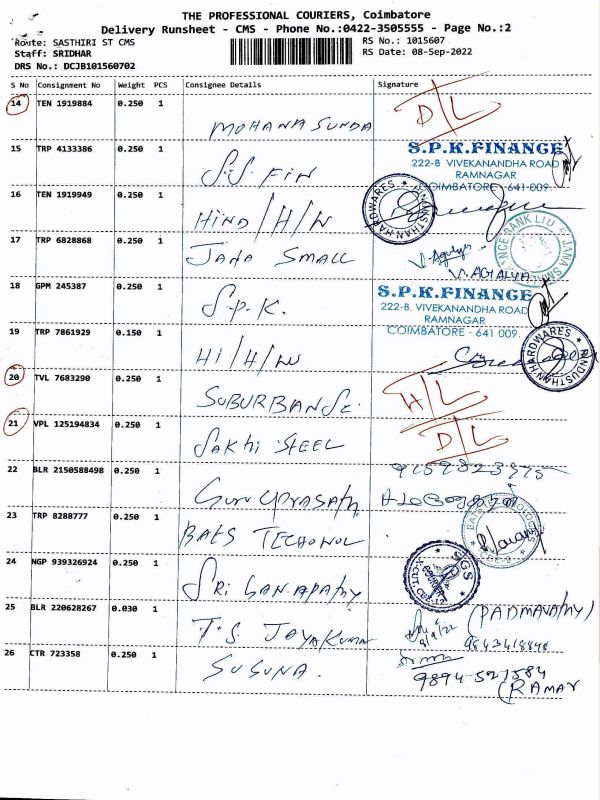 THE PROFESSIONAL COURIERS, Coimbatore
Delivery Runsheet - CMS - Phone No.:0422-3505555 - Page No.:2
Route: SASTHIRI ST CMS
RS No.: 1015607
Staff: SRIDHAR
RS Date: 08-Sep-2022
DRS No.: DCJB101560702
S No Consignment No Weight PCS Consignee Details Signature
14 TEN 1919884 0.250 1
D/L
MOHANA SUNDA
15 TRP 4133386 0.250 1
S.P.K.FINANCE
222-B VIVEKANANDHA ROAD
RAMNAGAR
COIMBATORE - 641 009.
S.S. FIN
16 TEN 1919949 0.250 1
HINDUSTHAN HARDWARES
HIND/H/W
17 TRP 6828868 0.250 1
JANA SMALL
V. AGALYA
18 GPM 245387 0.250 1
S.P.K.FINANCE
222-B. VIVEKANANDHA ROAD
RAMNAGAR
COIMBATORE - 641 009.
S.P.K.
19 TRP 7861929 0.150 1
HINDUSTHAN HARDWARES
HI/H/W
20 TVL 7683290 0.250 1
H/L
SUBURBAN SE.
21 VPL 125194834 0.250 1
D/L
SAKHI STEEL
22 BLR 2150588498 0.250 1
GURUPRASATH
23 TRP 8288777 0.250 1
BATS TECHONOL
24 NGP 939326924 0.250 1
SGS
SRI GANAPATHY
25 BLR 220628267 0.030 1
(PADMAVATHY)
9/9/22
T.S. JAYAKUMAR
26 CTR 723358 0.250 1
SUGUNA.
9894-521584
(RAMAR